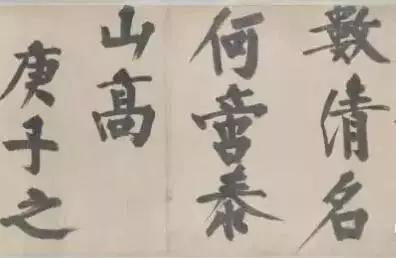 數清名
何啻泰
山高
庚子之